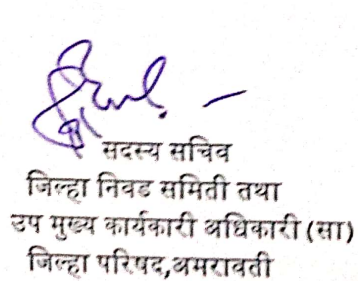 सदस्य सचिव
जिल्हा निवड समिती तथा
उप मुख्य कार्यकारी अधिकारी (सा)
जिल्हा परिषद,अमरावती